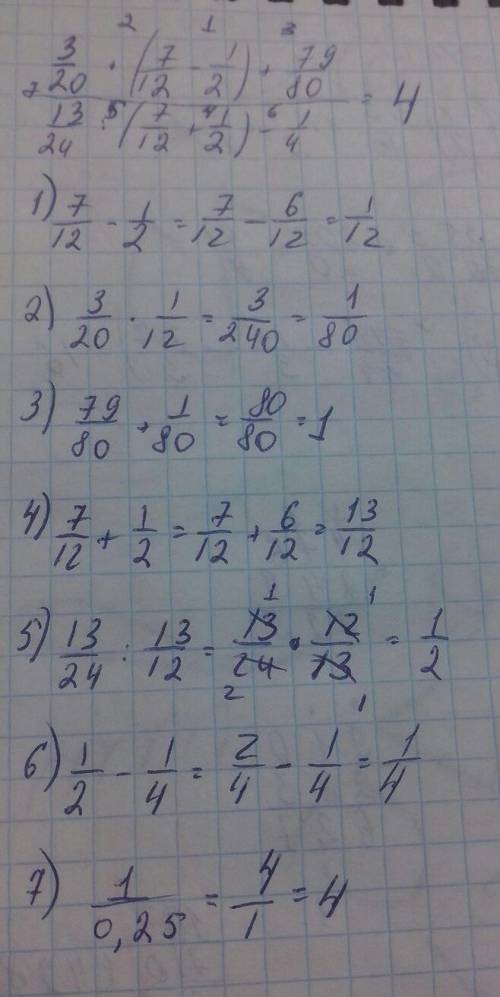 2 1 3
3/20 · (7/12 - 1/2) + 79/80
7 ―――――――――― = 4
13/24 :5 (7/12 +4 1/2) -6 1/4
1) 7/12 - 1/2 = 7/12 - 6/12 = 1/12
2) 3/20 · 1/12 = 3/240 = 1/80
3) 79/80 + 1/80 = 80/80 = 1
4) 7/12 + 1/2 = 7/12 + 6/12 = 13/12
5) 13/24 : 13/12 = 13/24 · 12/13 = 1/2
6) 1/2 - 1/4 = 2/4 - 1/4 = 1/4
7) 1/0,25 = 4/1 = 4